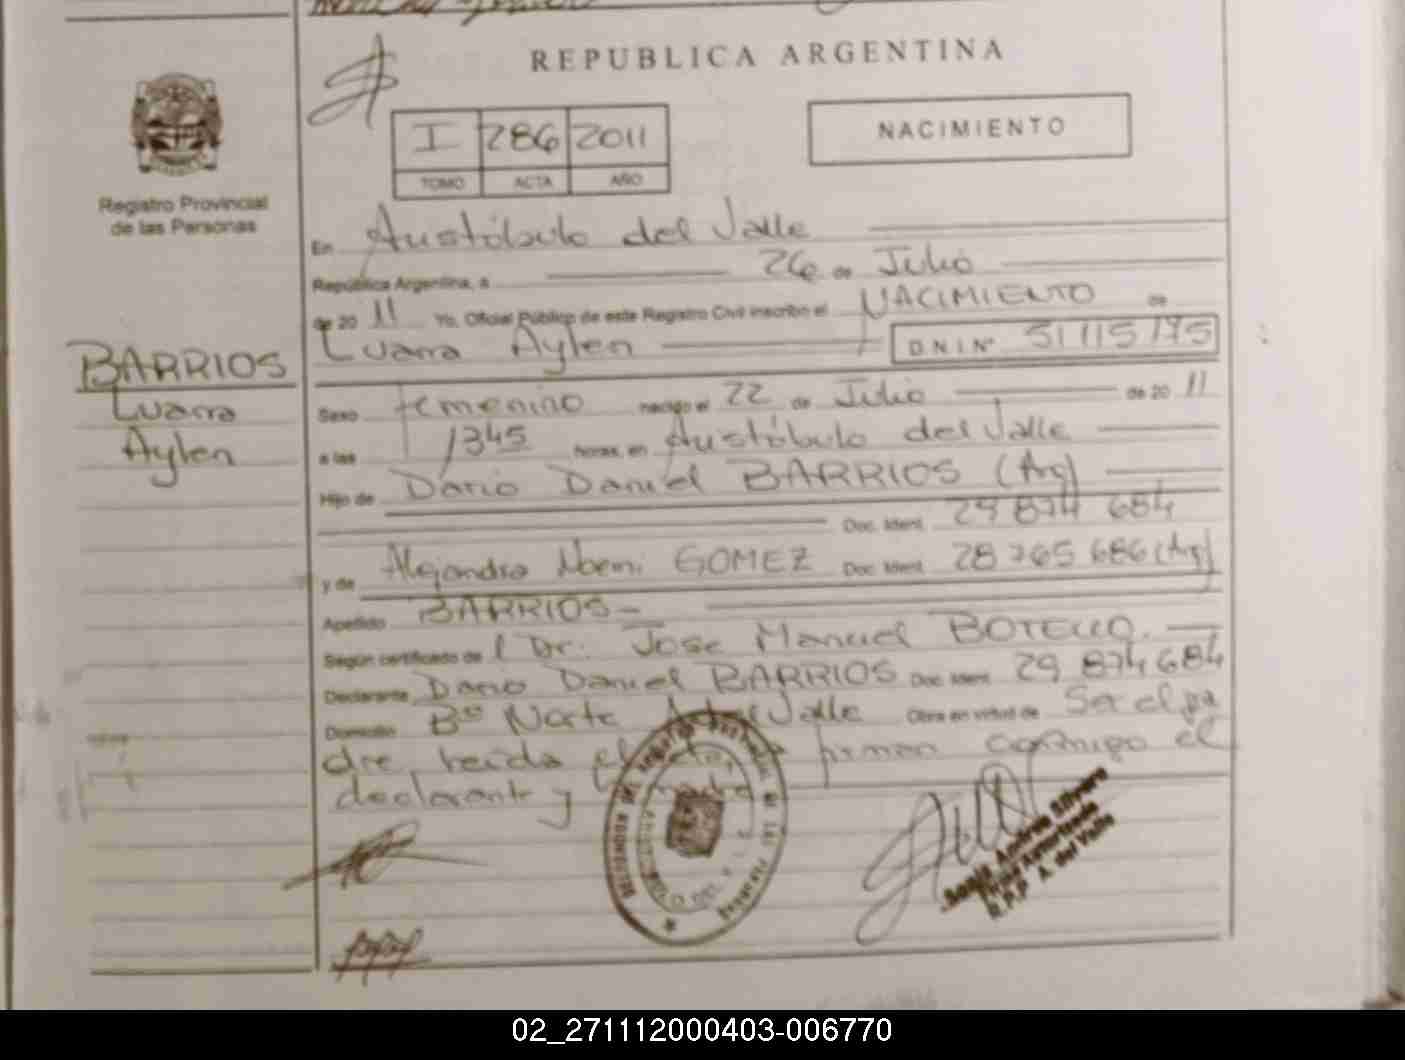 REPUBLICA ARGENTINA
I 286 2011
TOMO ACTA AÑO
NACIMIENTO
Registro Provincial
de las Personas
En Aristóbulo del Valle
República Argentina, a 26 de Julio
de 20 11 Yo, Oficial Público de este Registro Civil inscribo el NACIMIENTO de
Luana Aylen D.N.I Nº 51 115 175
BARRIOS
Luana
Aylen
Sexo femenino nacido el 22 de Julio de 20 11
a las 1345 horas, en Aristóbulo del Valle
Hijo de Dario Daniel BARRIOS (Arg)
Doc. Ident. 29 874 684
y de Alejandra Noemi GOMEZ Doc. Ident. 28 765 686 (Arg)
Apellido BARRIOS
Según certificado de Dr. Jose Manuel BOTELLO.
Declarante Dario Daniel BARRIOS Doc. Ident. 29 874 684
Domicilio Bº Norte A. del Valle Obra en virtud de Ser el pa
dre, leida el acta firman conmigo el
declarante y madre
R.P.P A. del Valle
02_271112000403-006770